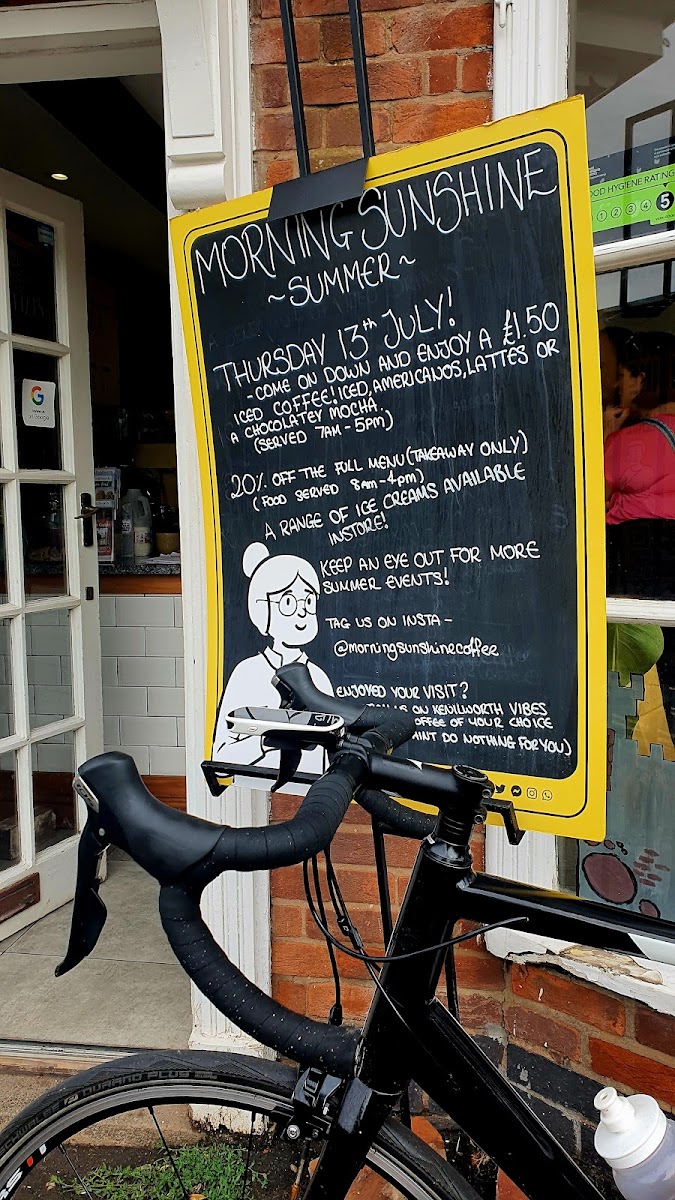 MORNING SUNSHINE
~SUMMER~
THURSDAY 13th JULY!
- COME ON DOWN AND ENJOY A £1.50
ICED COFFEE! ICED, AMERICANOS, LATTES OR
A CHOCOLATEY MOCHA.
(SERVED 7AM - 5PM)
20% OFF THE FULL MENU (TAKEAWAY ONLY)
(FOOD SERVED 8am - 4pm)
A RANGE OF ICE CREAMS AVAILABLE
INSTORE!
KEEP AN EYE OUT FOR MORE
SUMMER EVENTS!
TAG US ON INSTA -
@morningsunshinecoffee
ENJOYED YOUR VISIT?
US ON KENILWORTH VIBES
COFFEE OF YOUR CHOICE
AINT DO NOTHING FOR YOU)
FOOD HYGIENE RATING
1 2 3 4 5
G
on Google
DURANO PLUS